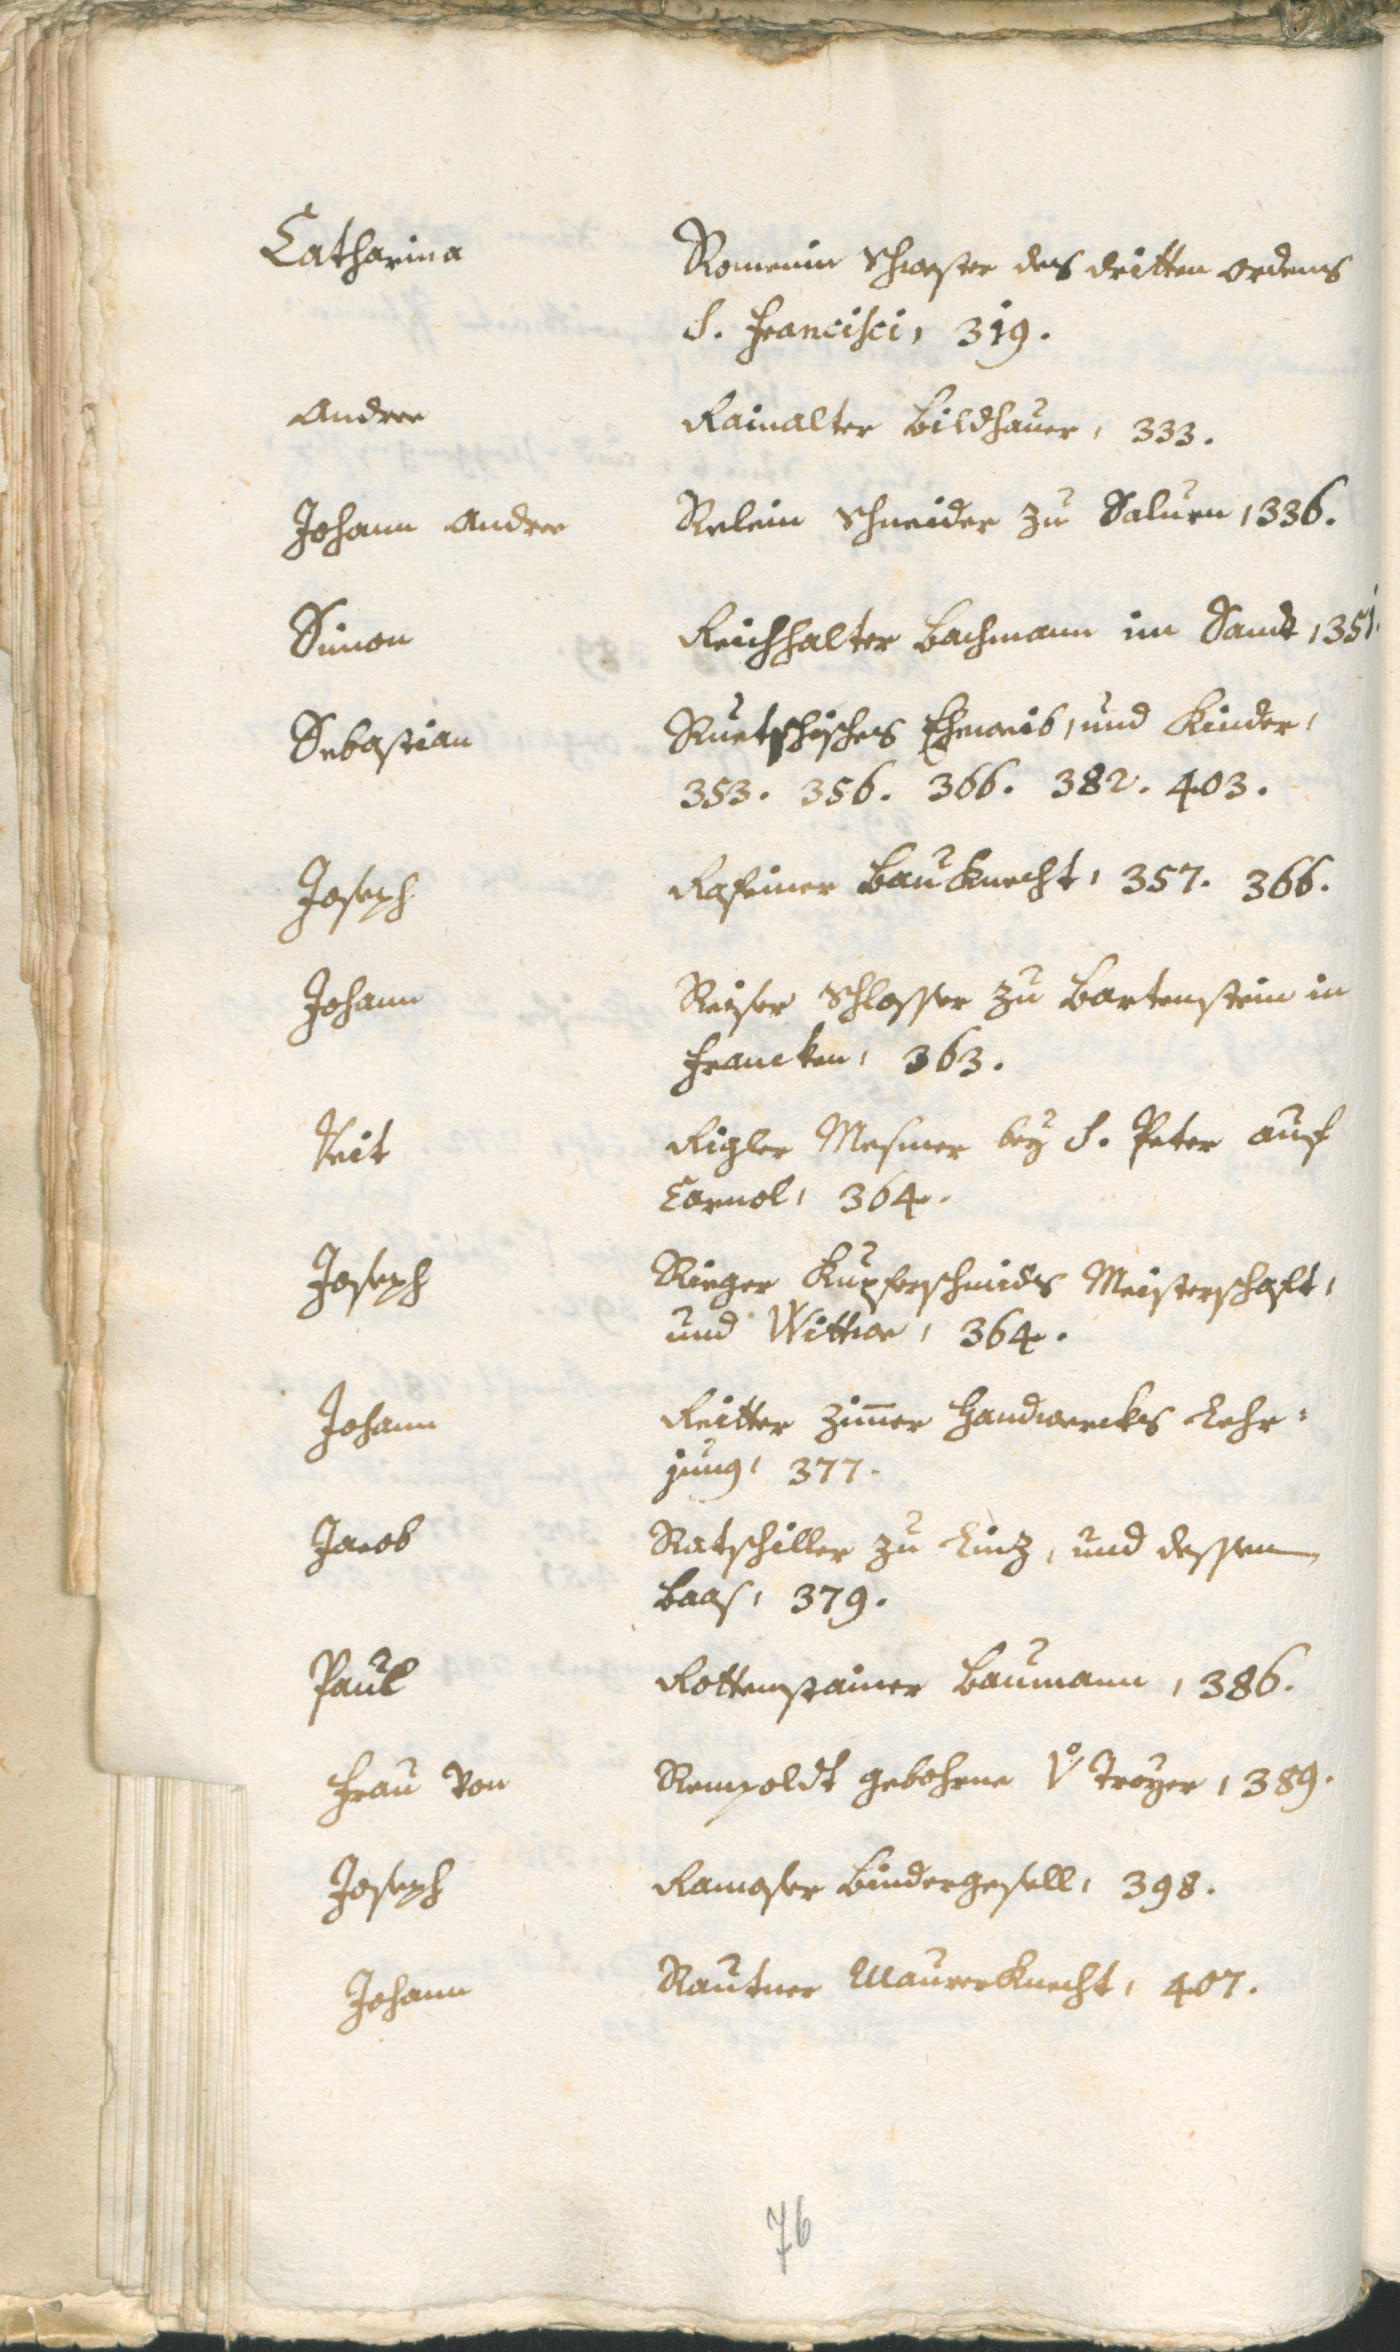 Catharina Romenin Schwester des dritten ordens
S. Francisci, 319.
Andree Rainalter Bildhauer, 333.
Johann Andree Relein Schneider zu Salurn, 336.
Simon Reichhalter Bachmann im Sand, 351.
Sebastian Ruetschisches Eheweib, und Kinder,
353. 356. 366. 382. 403.
Joseph Rafeiner Bauknecht, 357. 366.
Johann Reiser Schlosser zu Bartenstein in
Francken, 363.
Veit Rigler Mesmer bey S. Peter auf
Carnol, 364.
Joseph Rieger Kupferschmids Meisterschaft,
und Wittwe, 364.
Johann Reitter Zim̄er Handwercks Lehr=
jung, 377.
Jacob Ratschiller zu Linz, und dessen
Baas, 379.
Paul Rottenstainer Baumann, 386.
Frau Von Rempoldt gebohrne V. Troyer, 389.
Joseph Ramoser Bindergesell, 398.
Johann Rautner Maurerknecht, 407.
76